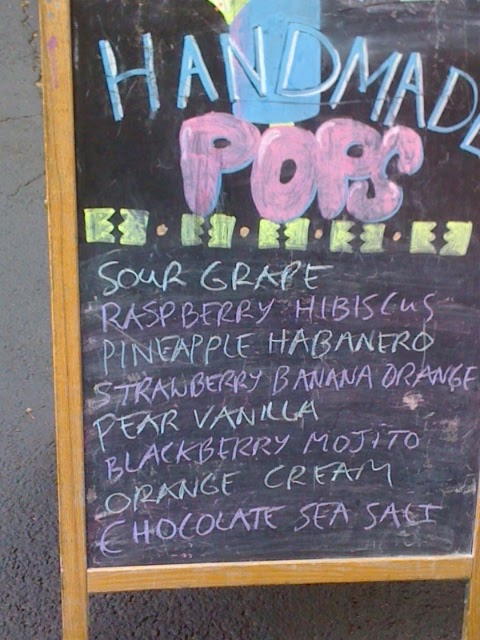 HANDMADE
POPS
SOUR GRAPE
RASPBERRY HIBISCUS
PINEAPPLE HABANERO
STRAWBERRY BANANA ORANGE
PEAR VANILLA
BLACKBERRY MOJITO
ORANGE CREAM
CHOCOLATE SEA SALT